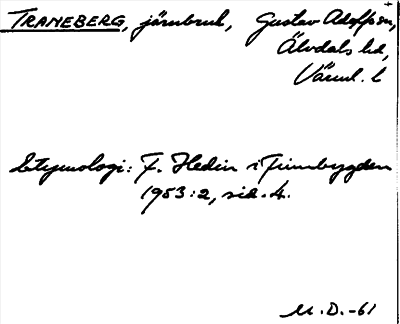 TRANEBERG, järnbruk, Gustav Adolfs sn,
Älvdals hd,
Värml. l
Etymologi: F. Hedin i Finnbygden
1953:2, sid. 4.
M.D.-61